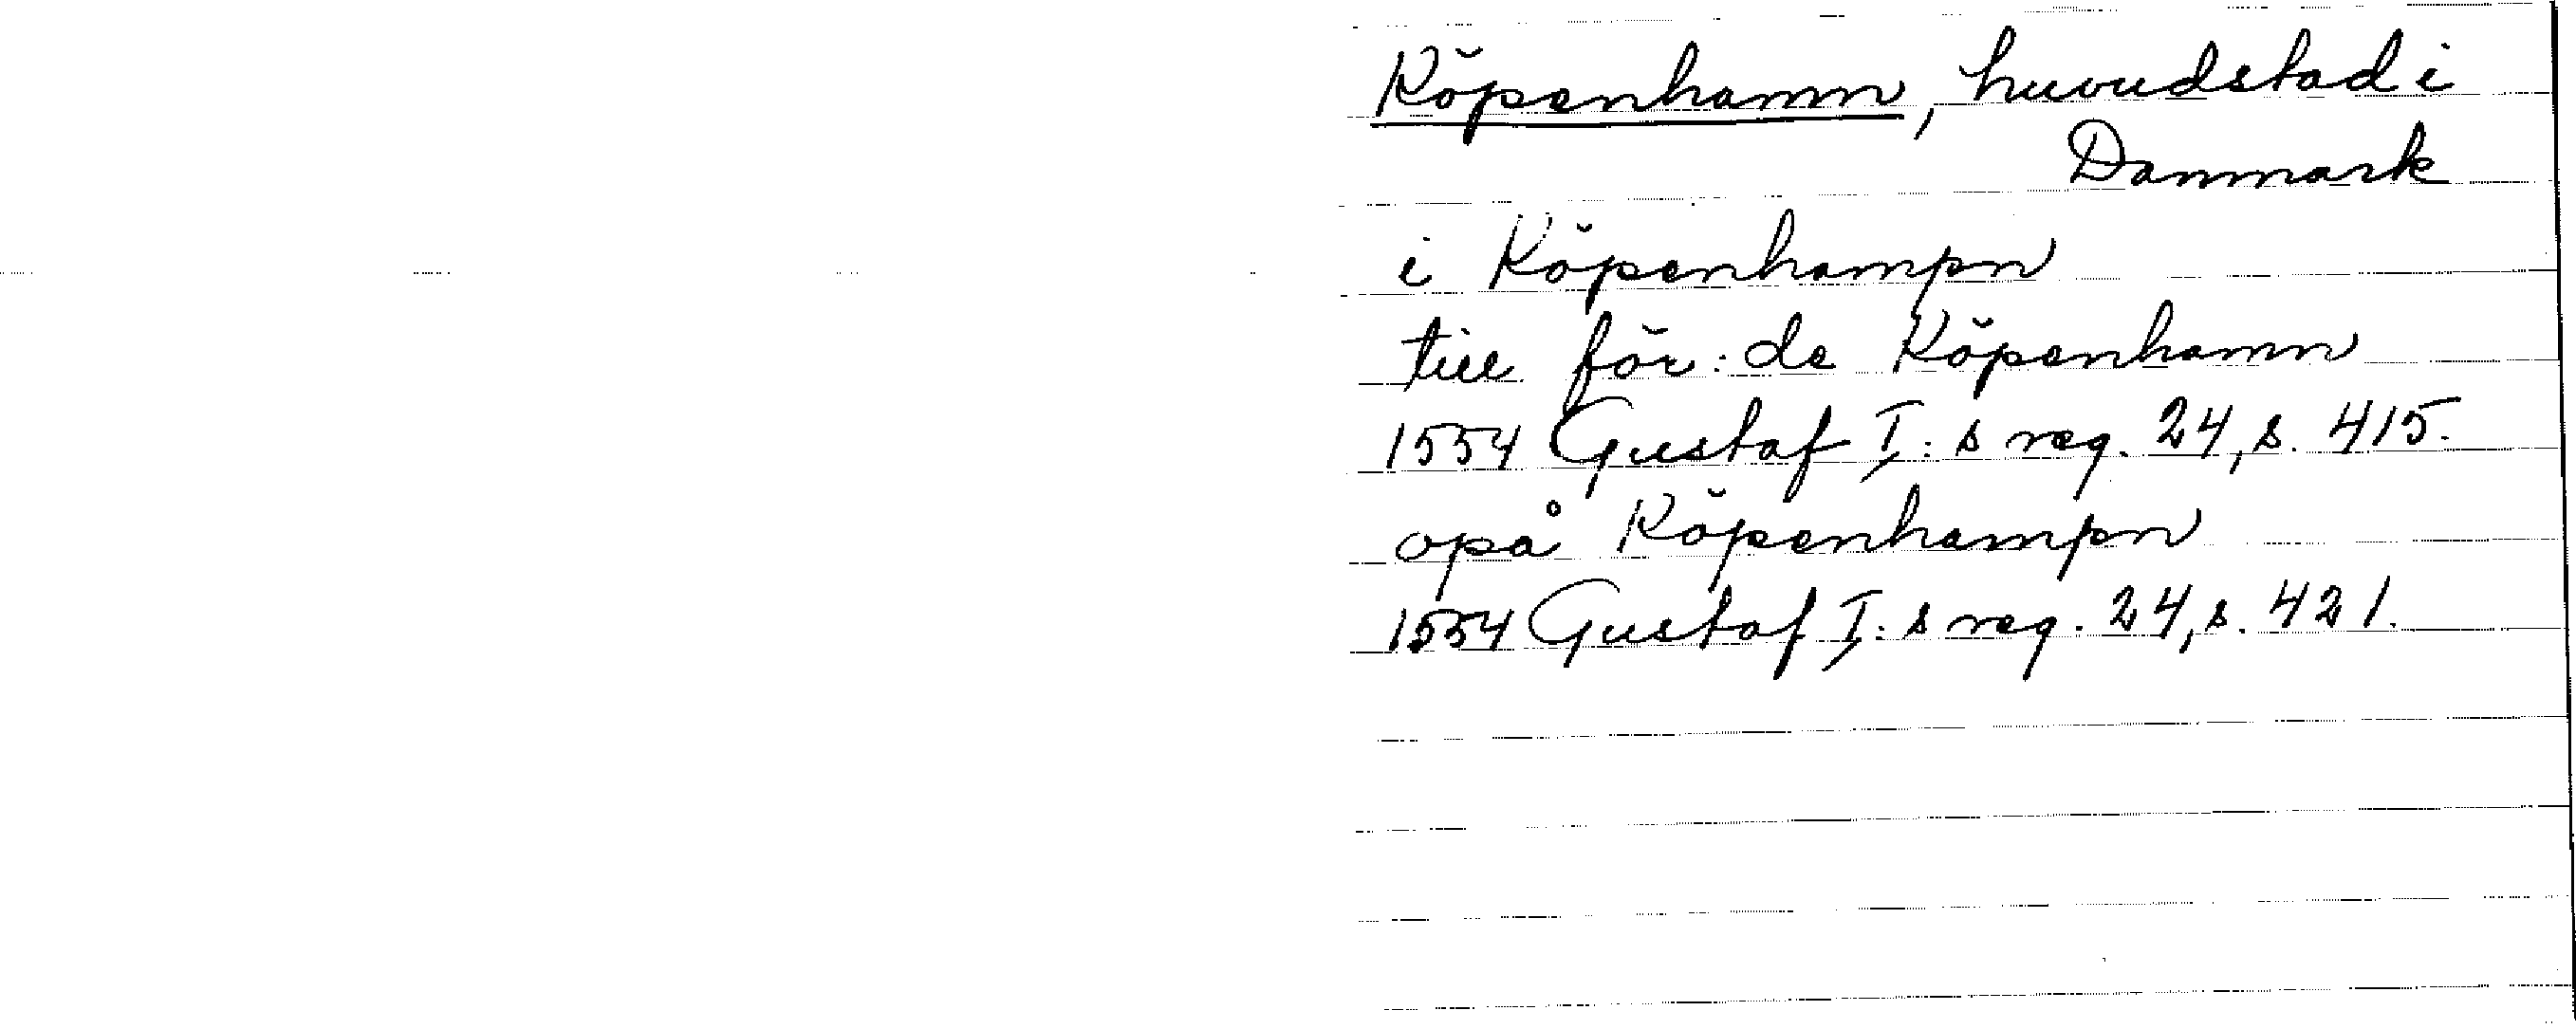 Köpenhamn, huvudstad i
Danmark
i Köpenhampn
till för: de Köpenhamn
1554 Gustaf I: s reg. 24, s. 415.
opå Köpenhampn
1554 Gustaf I: s reg. 24, s. 421.